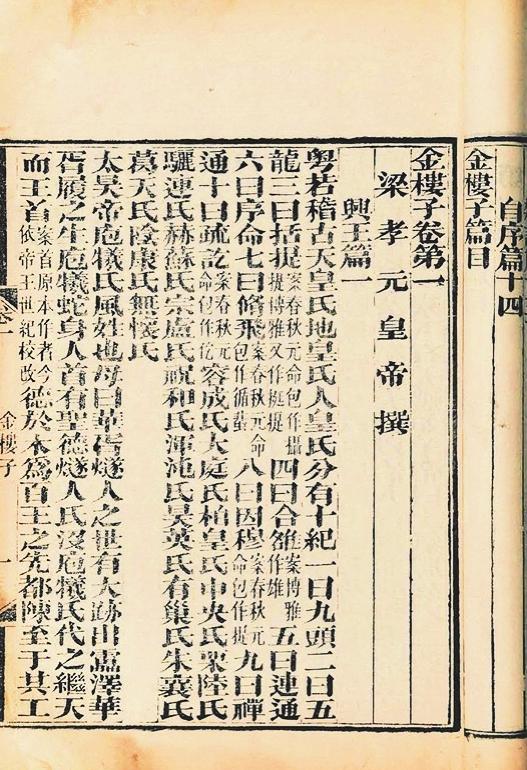 自序篇十四
金樓子篇目
金樓子卷第一
梁孝元皇帝撰
興王篇一
粤若稽古天皇氏地皇氏人皇氏分有十紀一曰九頭二曰五
龍三曰括提案春秋元命包作攝提博雅又作挻提四曰合雒案博雅作雄五曰連通
六曰序命七曰脩飛案春秋元命包作循蜚八曰因穆案春秋元命包作提九曰禪
通十曰疏訖案春秋元命包作仡容成氏大庭氏柏皇氏中央氏栗陸氏
驪連氏赫蘇氏宗盧氏祝和氏渾沌氏昊英氏有巢氏朱襄氏
葛天氏陰康氏無懷氏
太昊帝庖犧氏風姓也母曰華胥燧人之世有大跡出靁澤華
胥履之生庖犧蛇身人首有聖德燧人氏沒庖犧氏代之繼天
而王首案首原本作者今依帝王世紀校改德於木爲百王之先都陳至于共工
金樓子
一